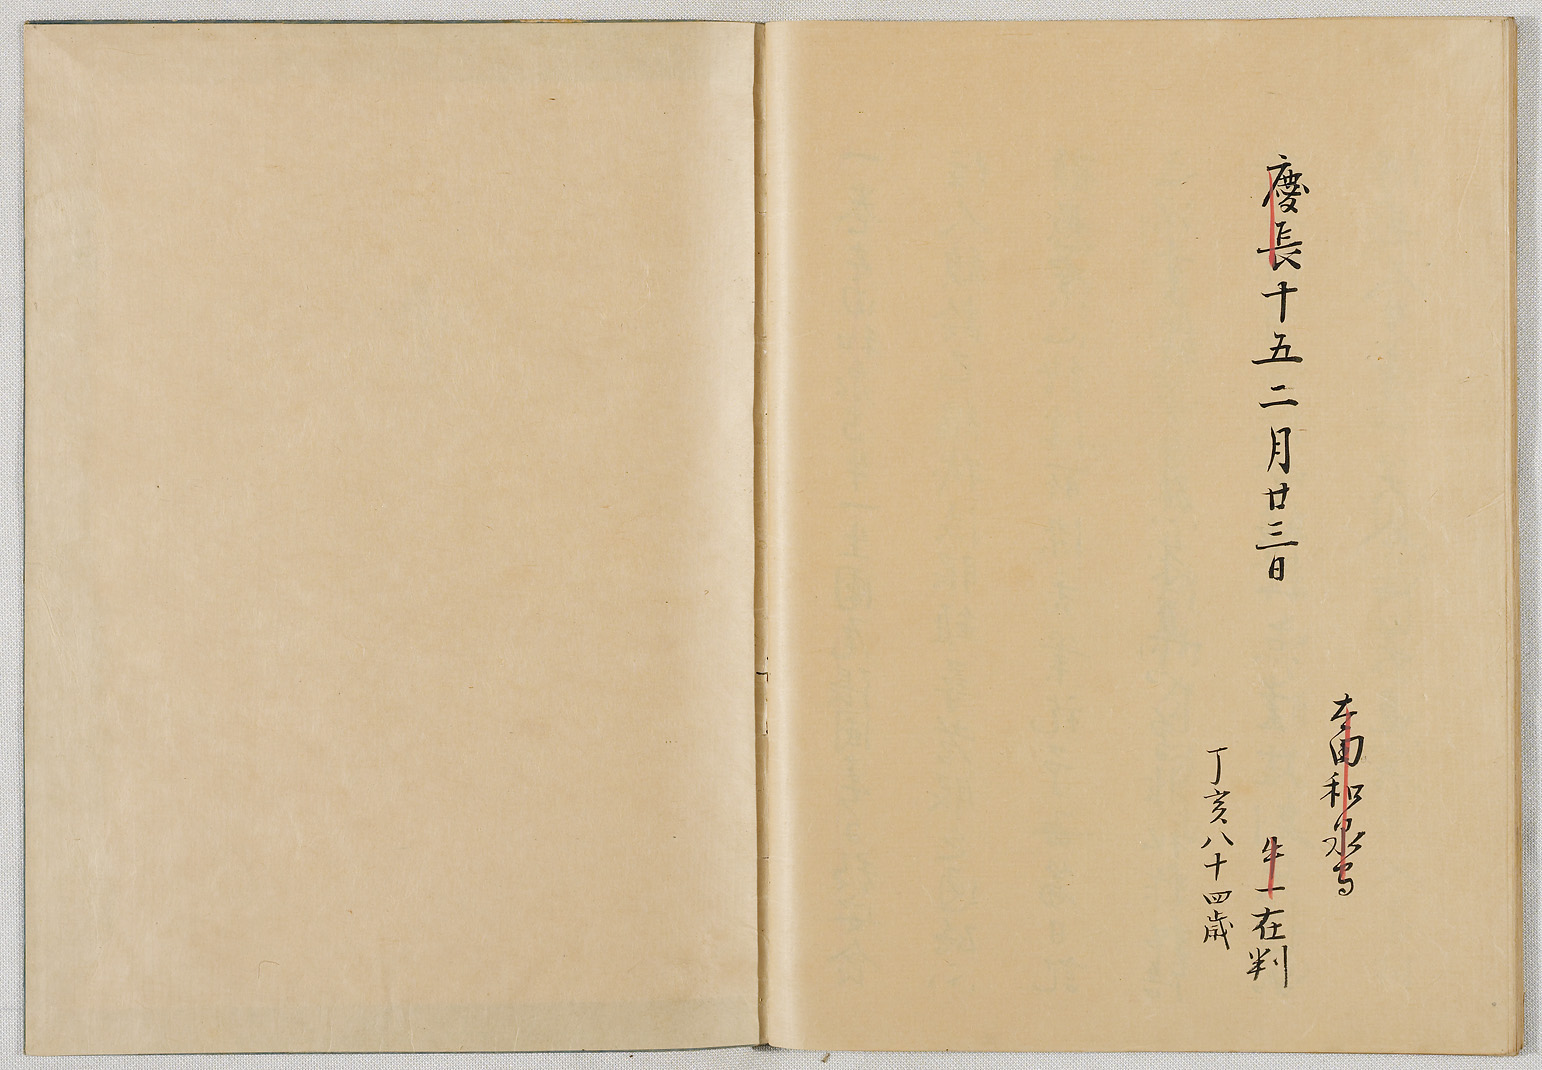 慶長十五二月廿三日
太田和泉守
牛一在判
丁亥八十四歳